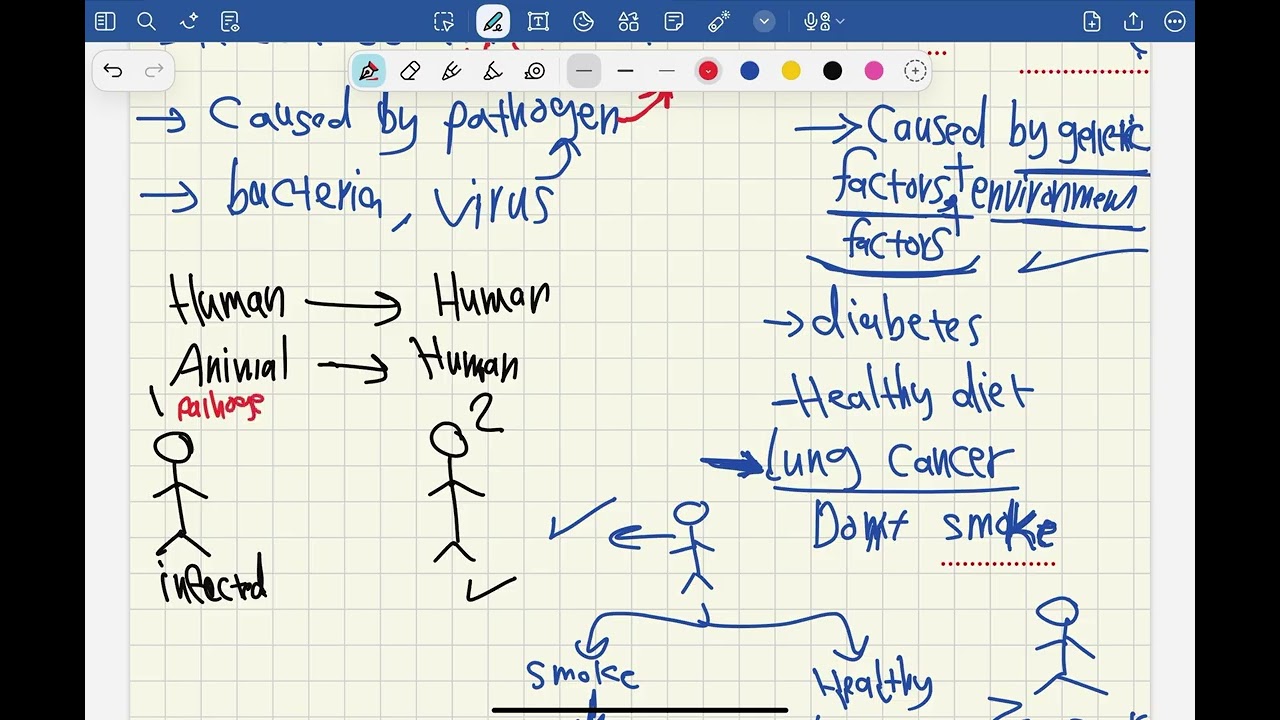 → Caused by pathogen
→ bacteria, virus
Human → Human
Animal → Human
1
pathoge
2
infected
→ Caused by genetic
factors + environmen
factors
→ diabetes
- Healthy diet
→ Lung cancer
Don't smoke
smoke
Healthy